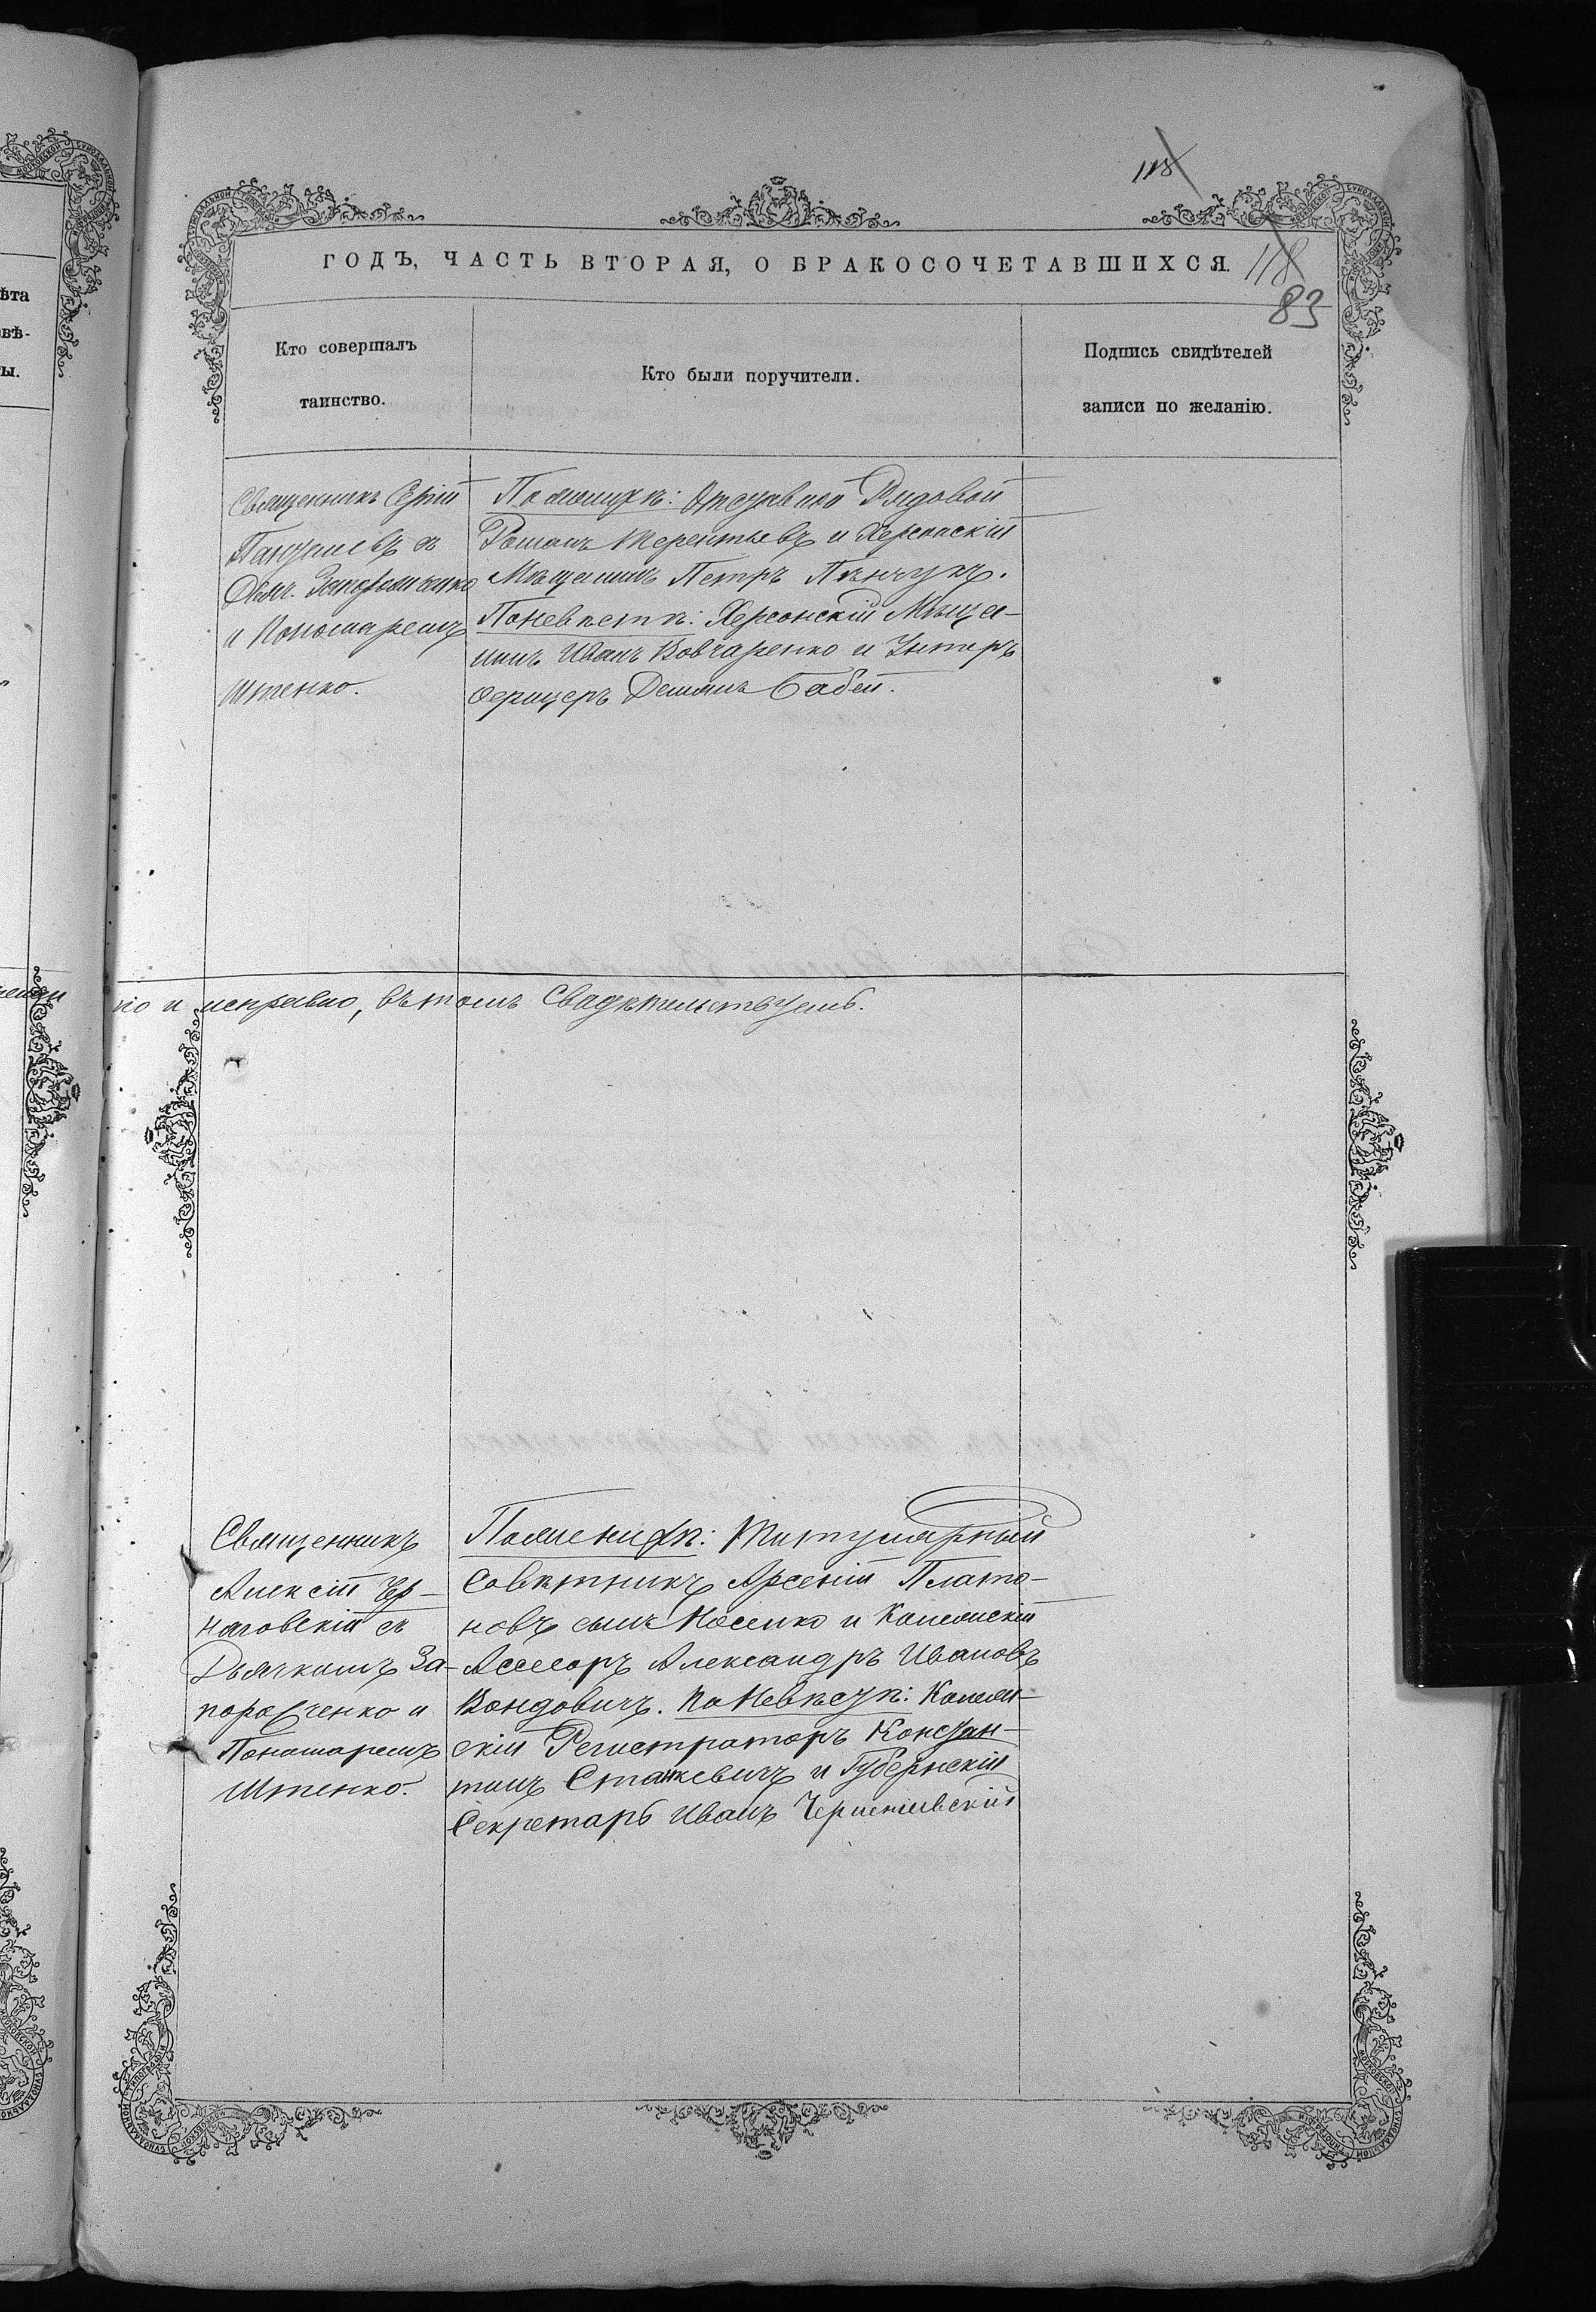 118
ГОДЪ, ЧАСТЬ ВТОРАЯ, О БРАКОСОЧЕТАВШИХСЯ.
118
83
Кто совершалъ
таинство.
Кто были поручители.
Подпись свидѣтелей
записи по желанію.
Священникъ Сергій
съ
Дьяч. Запорожченко
и Пономаремъ
Штенко.
По женихѣ: Отставной Рядовой
Романъ Терентьевъ и Херсонскій
Мѣщанинъ Петръ
По невѣстѣ: Херсонскій Мѣща-
нинъ Иванъ Вовчаренко и Унтеръ
Офицеръ Демьянъ Бабей.
но и исправно, въ томъ Свидѣтельствуемъ.
Священникъ
Алексій Чер-
няговскій съ
Дьячкомъ За-
порожченко и
Пономаремъ
Штенко.
По женихѣ: Титулярный
Совѣтникъ Арсеній Плато-
новъ сынъ Носенко и Колежскій
Ассесоръ Александръ Ивановъ
Вондовичъ. По Невѣстѣ: Колеж-
скій Регистраторъ Констан-
тинъ Станкевичъ и Губернскій
Секретарь Иванъ Чернявскій
ѣта
вѣ-
ы.